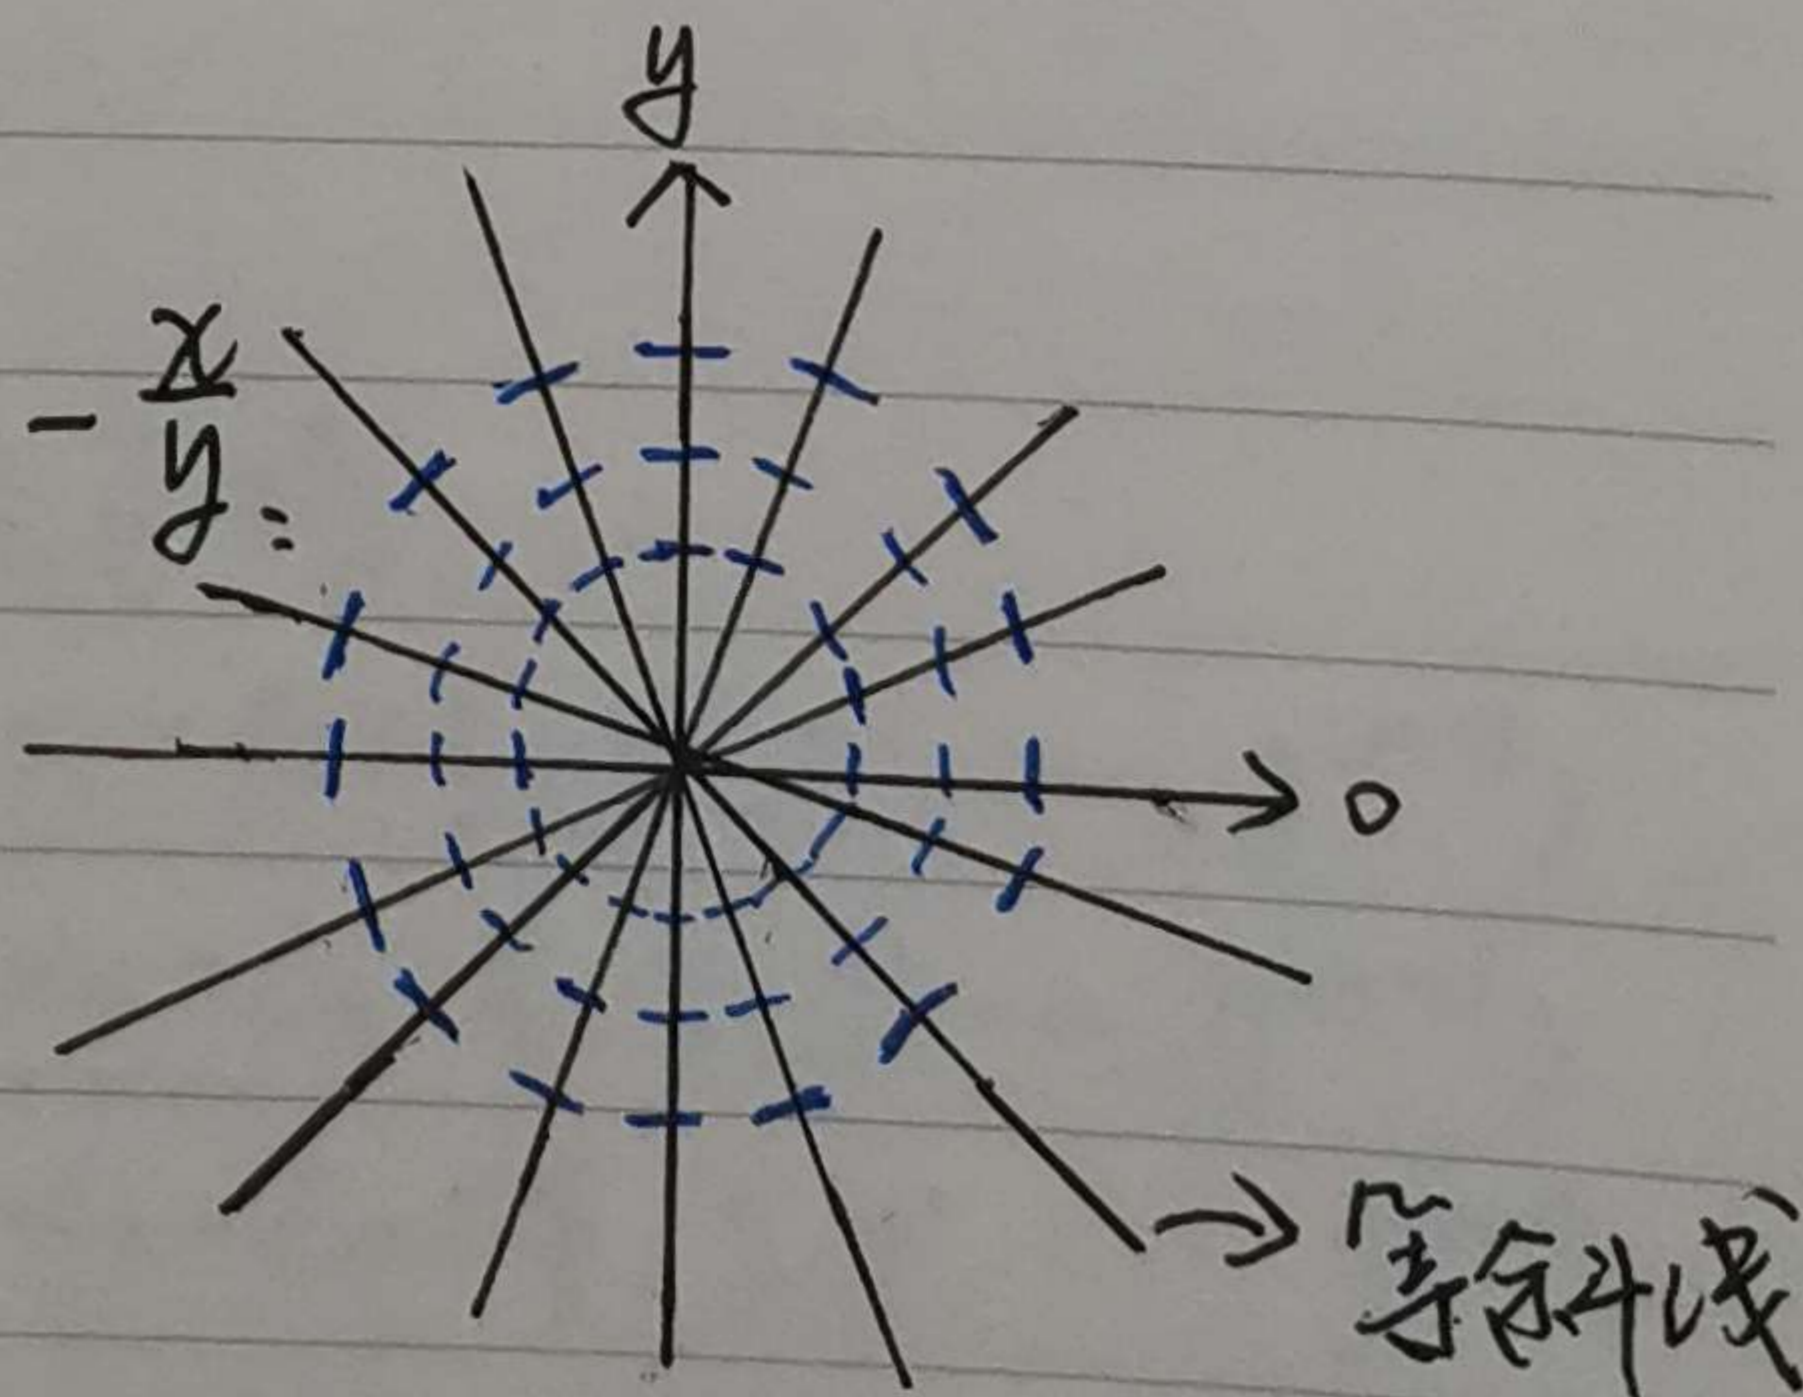 y
- x/y:
0
→ 等斜线